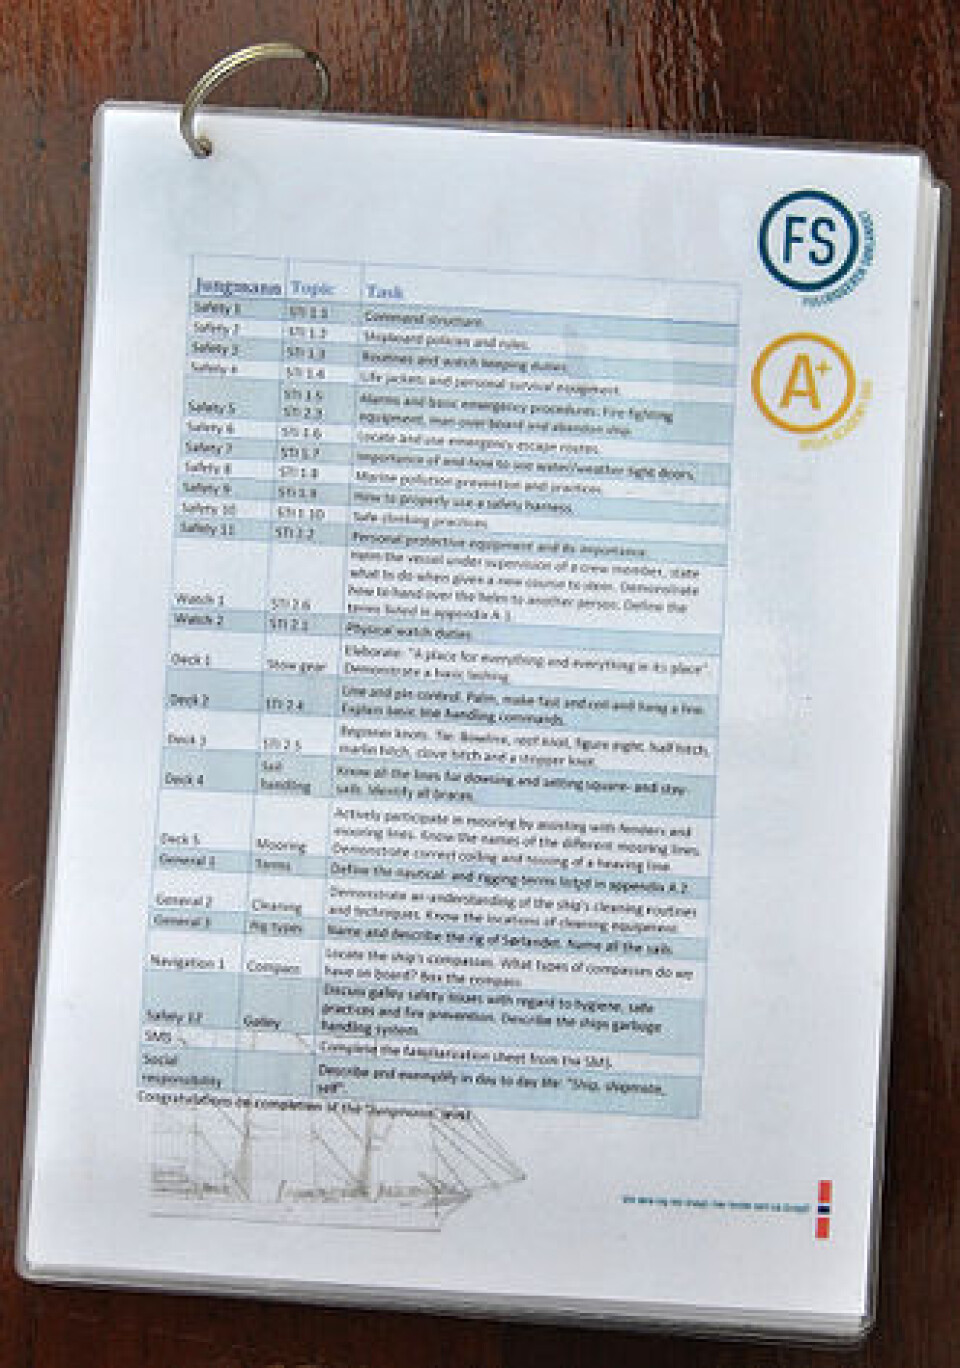 FS
FULLRIGGEREN SØRLANDET
A+
Jungmann Topic Task
Safety 1 STI 1.1 Command structure.
Safety 2 STI 1.2 Shipboard policies and rules.
Safety 3 STI 1.3 Routines and watch keeping duties.
Safety 4 STI 1.4 Life jackets and personal survival equipment.
STI 1.5 Alarms and basic emergency procedures: Fire fighting
Safety 5 STI 2.3 equipment, man over board and abandon ship.
Safety 6 STI 1.6 Locate and use emergency escape routes.
Safety 7 STI 1.7 Importance of and how to use water/weather tight doors.
Safety 8 STI 1.8 Marine pollution prevention and practices.
Safety 9 STI 1.9 How to properly use a safety harness.
Safety 10 STI 1.10 Safe climbing practices
Safety 11 STI 2.2 Personal protective equipment and its importance.
Helm the vessel under supervision of a crew member, state
what to do when given a new course to steer. Demonstrate
how to hand over the helm to another person. Define the
Watch 1 STI 2.6 terms listed in appendix A.1
Watch 2 STI 2.1 Physical watch duties
Elaborate: "A place for everything and everything in its place".
Deck 1 Stow gear Demonstrate a basic lashing.
Line and pin control. Palm, make fast and coil and hang a line.
Deck 2 STI 2.4 Explain basic line handling commands.
Beginner knots. Tie: Bowline, reef knot, figure eight, half hitch,
Deck 3 STI 2.5 marlin hitch, clove hitch and a stopper knot.
Sail Know all the lines for dowsing and setting square- and stay-
Deck 4 handling sails. Identify all braces.
Actively participate in mooring by assisting with fenders and
mooring lines. Know the names of the different mooring lines.
Deck 5 Mooring Demonstrate correct coiling and tossing of a heaving line.
General 1 Terms Define the nautical- and rigging-terms listed in appendix A.2.
Demonstrate an understanding of the ship's cleaning routines
General 2 Cleaning and techniques. Know the locations of cleaning equipment.
General 3 Rig types Name and describe the rig of Sørlandet. Name all the sails.
Locate the ship's compasses. What types of compasses do we
Navigation 1 Compass have on board? Box the compass.
Discuss galley safety issues with regard to hygiene, safe
practices and fire prevention. Describe the ships garbage
Safety 12 Galley handling system.
SMS Complete the familiarization sheet from the SMS.
Social Describe and exemplify in day to day life: "Ship, shipmate,
responsibility self".
Congratulations on completion of the "Jungmann" level